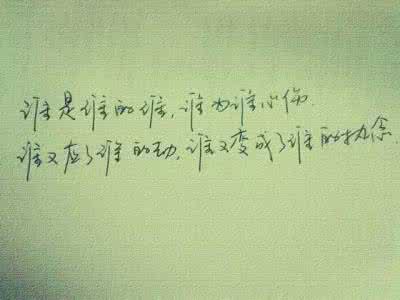 谁是谁的谁，谁为谁心伤.
谁又应了谁的劫，谁又变成了谁的执念.